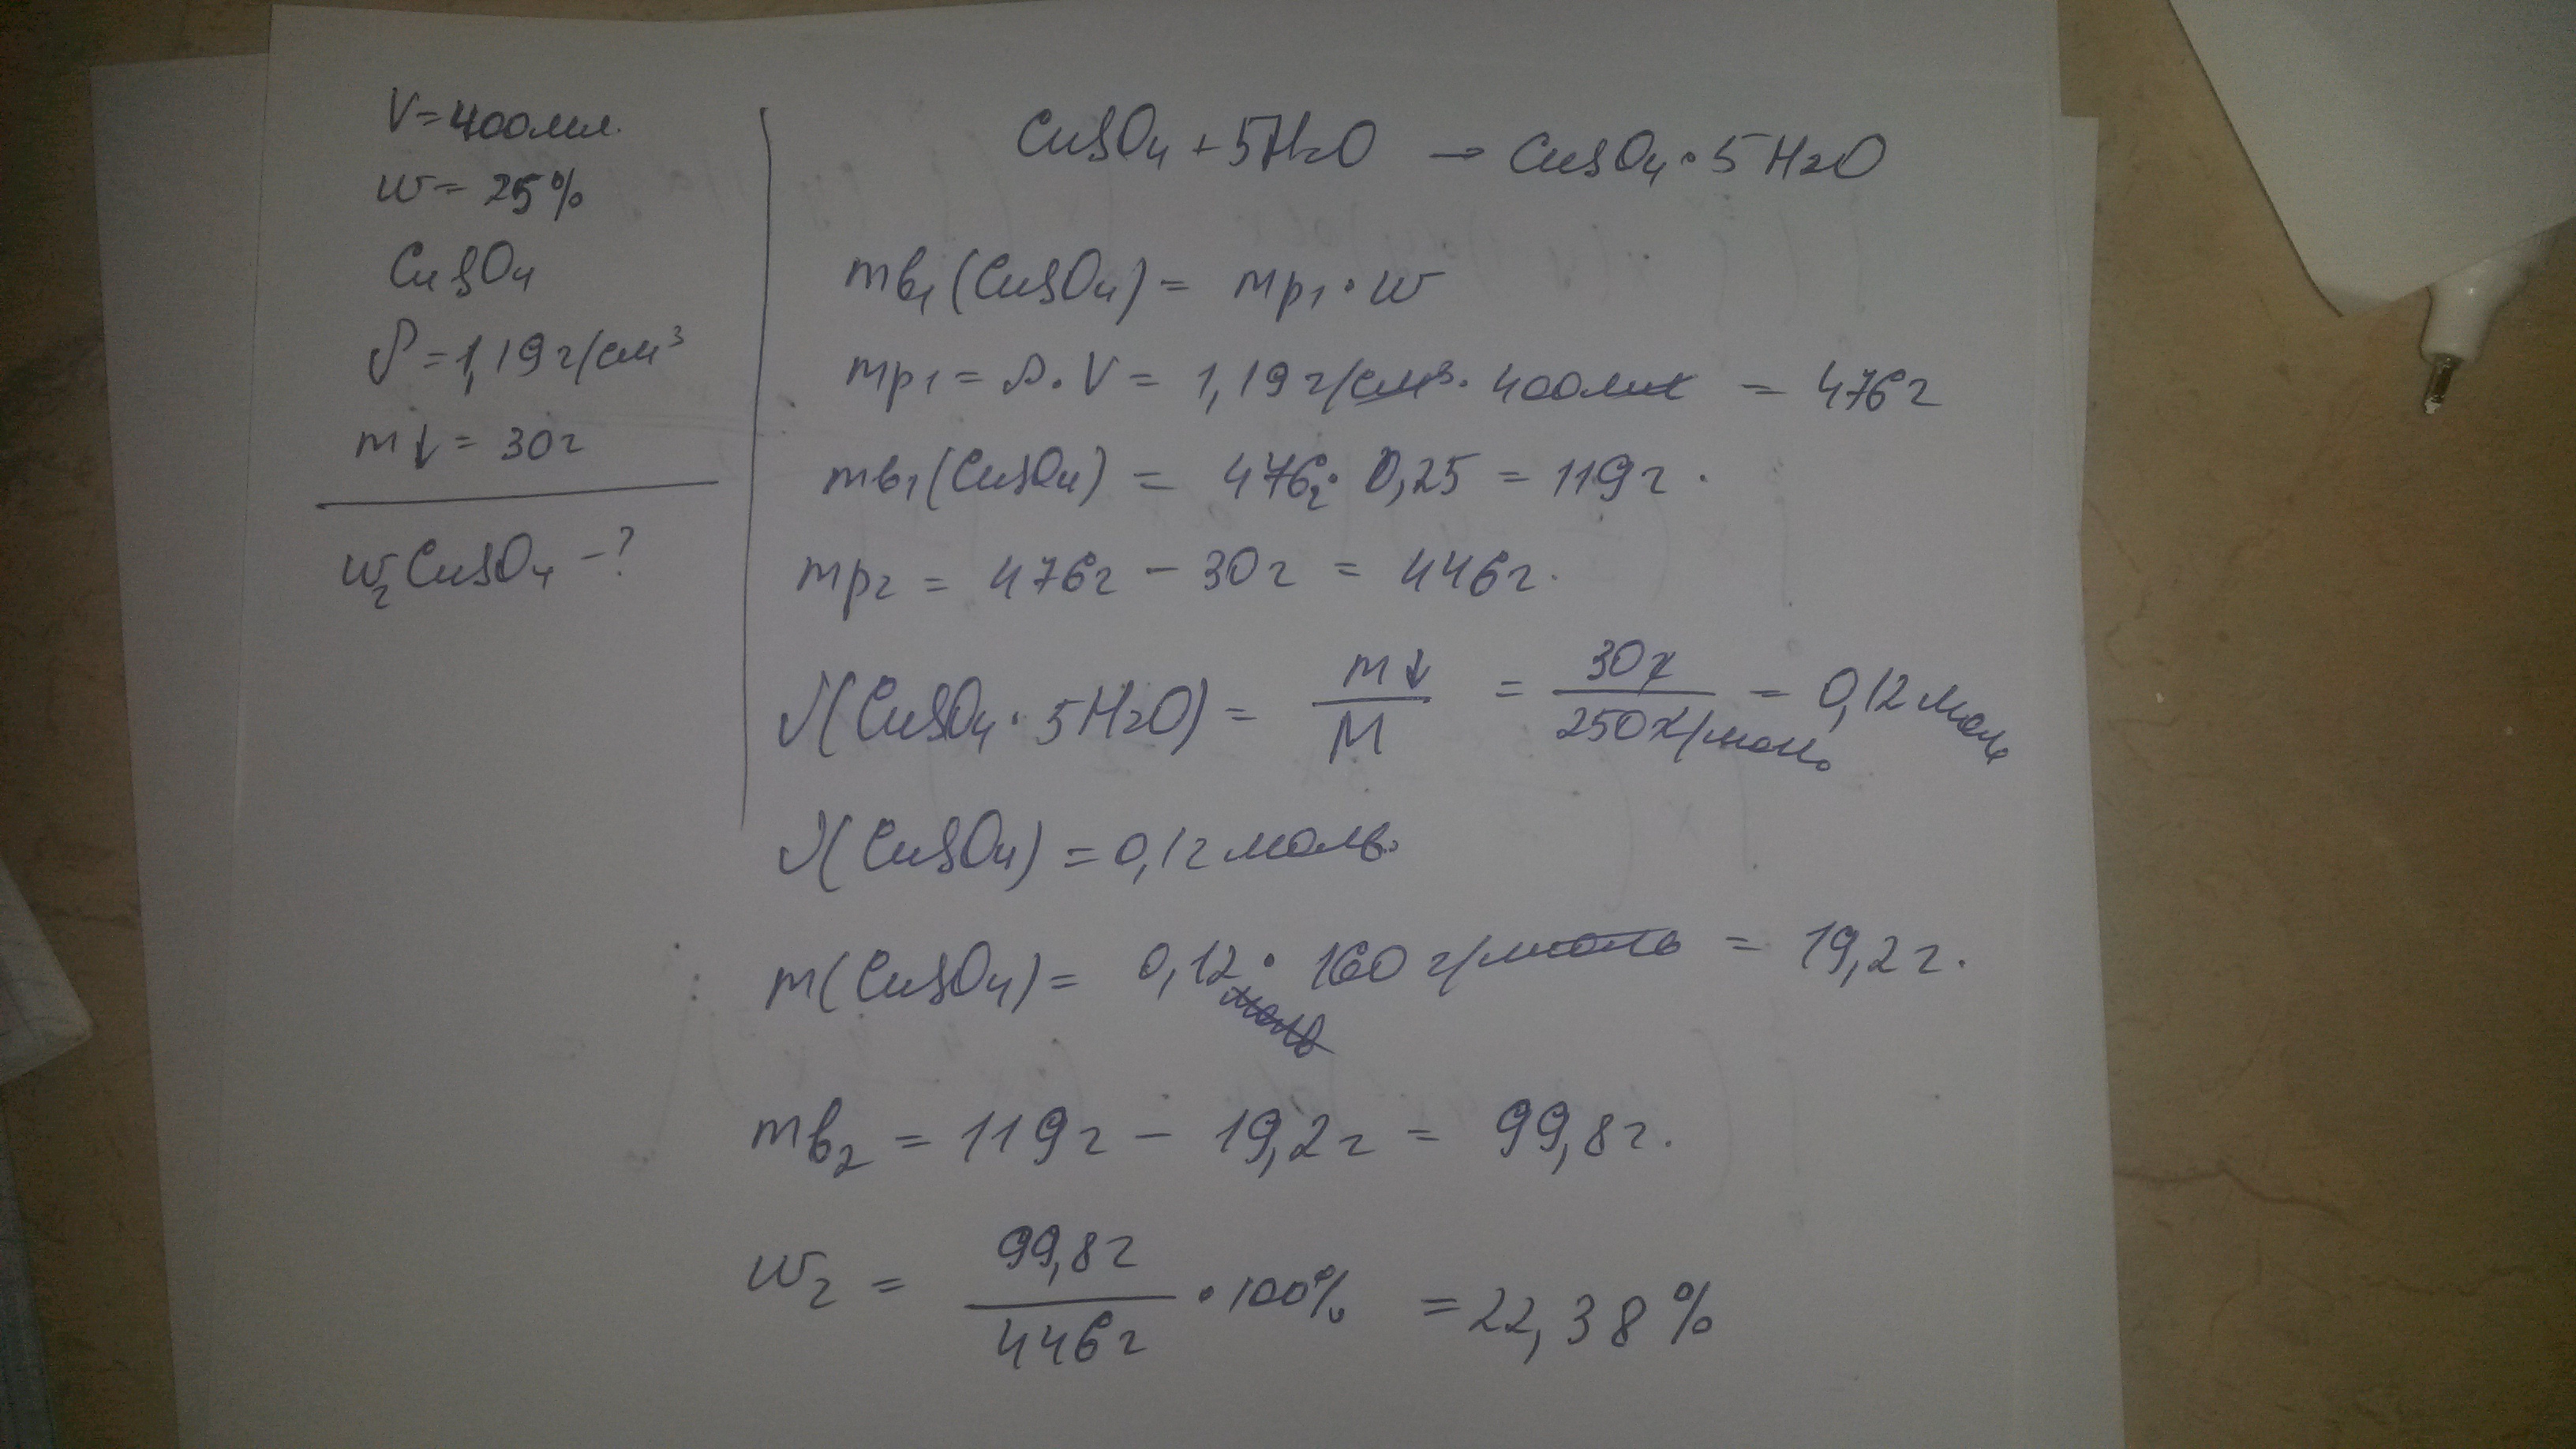 V=400мл.
w= 25%
CuSO4
ρ=1,19г/см³
m↓= 30г
w2CuSO4 -?
CuSO4+5H2O → CuSO4•5H2O
mв1(CuSO4)= mp1•w
mp1=ρ.V= 1,19г/см³. 400мл = 476г
mв1(CuSO4) = 476г• 0,25=119г.
mp2 = 476г-30г = 446г.
ν(CuSO4•5H2O)= m↓/M = 30г/250г/моль = 0,12моль
ν(CuSO4)=0,12моль.
m(CuSO4)= 0,12моль•160г/моль = 19,2г.
mв2=119г- 19,2г= 99,8г.
w2 = 99,8г/446г •100% =22,38%